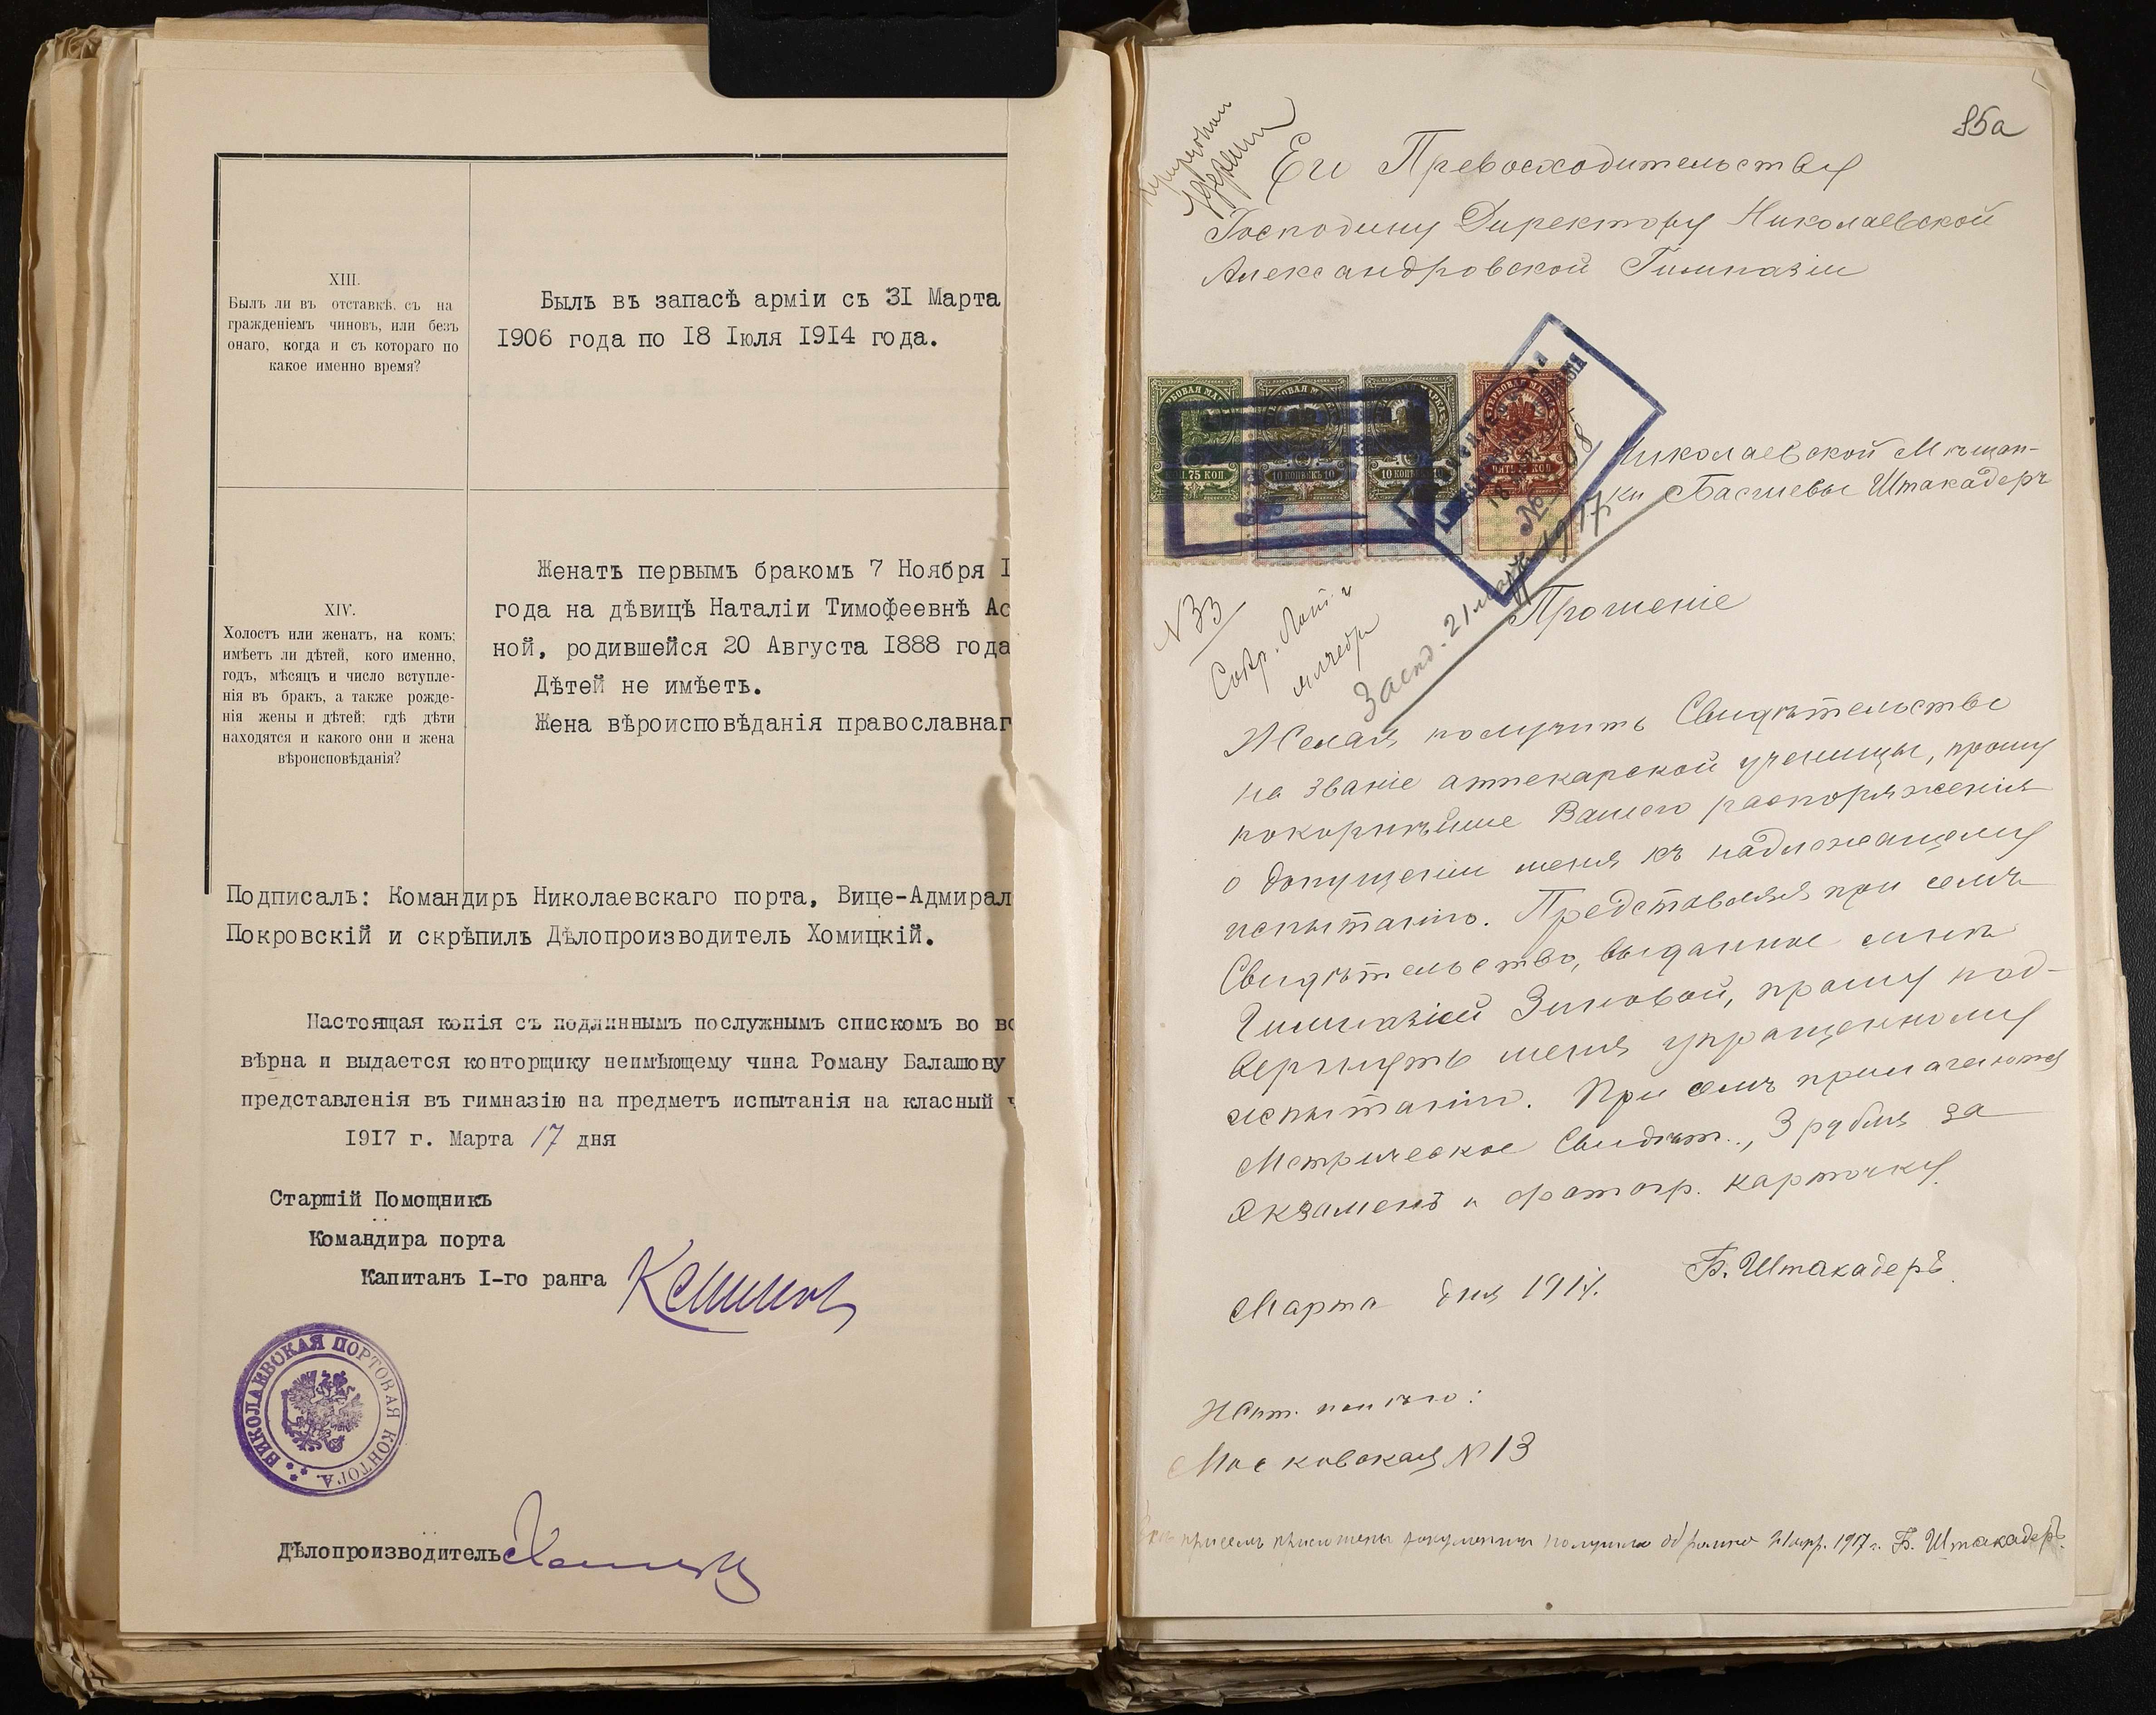 XIII.
Былъ ли въ отставкѣ, съ на
гражденіемъ чиновъ, или безъ
онаго, когда и съ котораго по
какое именно время?
Былъ въ запасѣ арміи съ 31 Марта
1906 года по 18 Іюля 1914 года.
XIV.
Холостъ или женатъ, на комъ;
имѣетъ ли дѣтей, кого именно,
годъ, мѣсяцъ и число вступле-
нія въ бракъ, а также рожде-
нія жены и дѣтей; гдѣ дѣти
находятся и какого они и жена
вѣроисповѣданія?
Женатъ первымъ бракомъ 7 Ноября 1
года на дѣвицѣ Наталіи Тимофеевнѣ Ас
ной, родившейся 20 Августа 1888 года
Дѣтей не имѣетъ.
Жена вѣроисповѣданія православнаг
Подписалъ: Командиръ Николаевскаго порта, Вице-Адмирал
Покровскій и скрѣпилъ Дѣлопроизводитель Хомицкій.
Настоящая копія съ подлиннымъ послужнымъ спискомъ во вс
вѣрна и выдается конторщику неимѣющему чина Роману Балашову
представленія въ гимназію на предметъ испытанія на класный ч
1917 г. Марта 17 дня
Старшій Помощникъ
Командира порта
Капитанъ I-го ранга
НИКОЛАЕВСКАЯ ПОРТОВАЯ КОНТОРА
Дѣлопроизводитель
85а
Его Превосходительству
Господину Директору Николаевской
Александровской Гимназіи
ГЕРБОВАЯ МАРКА
1 р. 75 КОП
10 КОПѢЕКЪ 10
10 КОПѢЕКЪ 10
ПЯТЬ КОП
Николаевской Мѣщан-
ки Басшевы Штакадеръ
Прошеніе
N 33
Сокр. Лат. и
Засвид. 21 марта 1917
Желая получить Свидѣтельство
на званіе аптекарской ученицы, прошу
покорнѣйше Вашего распоряженія
о допущеніи меня къ надлежащему
испытанію. Представляя при семъ
Свидѣтельство, выданное мнѣ
Гимназіей Зиновой, прошу под-
вергнуть меня упрощенному
испытанію. При семъ прилагаются
Метрическое Свидѣт., 3 рубля за
экзаменъ и фотогр. карточку.
Б. Штакадеръ.
Марта дня 1917.
Жит. имѣю:
Московская N 13
при семъ приложены документы получила обратно 21 апр. 1917 г. Б. Штакадеръ.